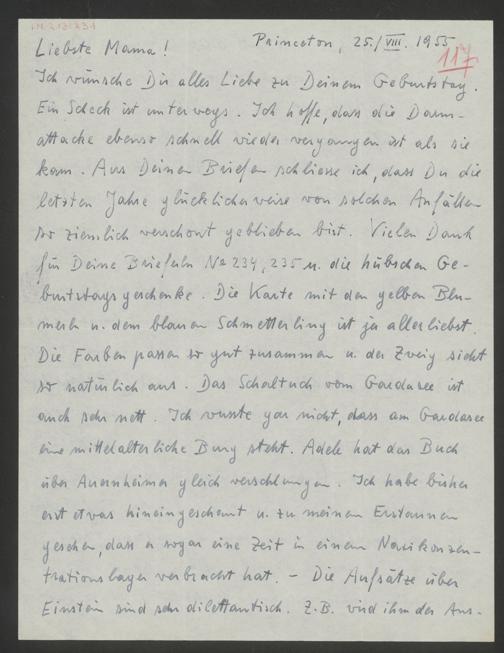 Princeton, 25./VIII. 1955
117
Liebste Mama!
Ich wünsche Dir alles Liebe zu Deinem Geburtstag.
Ein Scheck ist unterwegs. Ich hoffe, dass die Darm-
attacke ebenso schnell wieder vergangen ist als sie
kam. Aus Deinen Briefen schliesse ich, dass Du die
letzten Jahre glücklicherweise von solchen Anfällen
so ziemlich verschont geblieben bist. Vielen Dank
für Deine Brieferln No 234, 235 u. die hübschen Ge-
burtstagsgeschenke. Die Karte mit den gelben Blu-
merln u. dem blauen Schmetterling ist ja allerliebst.
Die Farben passen so gut zusammen u. der Zweig sieht
so natürlich aus. Das Schaltuch vom Gardasee ist
auch sehr nett. Ich wusste gar nicht, dass am Gardasee
eine mittelalterliche Burg steht. Adele hat das Buch
über Auernheimer gleich verschlungen. Ich habe bisher
erst etwas hineingeschaut u. zu meinem Erstaunen
gesehen, dass er sogar eine Zeit in einem Nazikonzen-
trationslager verbracht hat. – Die Aufsätze über
Einstein sind sehr dilettantisch. Z.B. wird ihm der Aus-